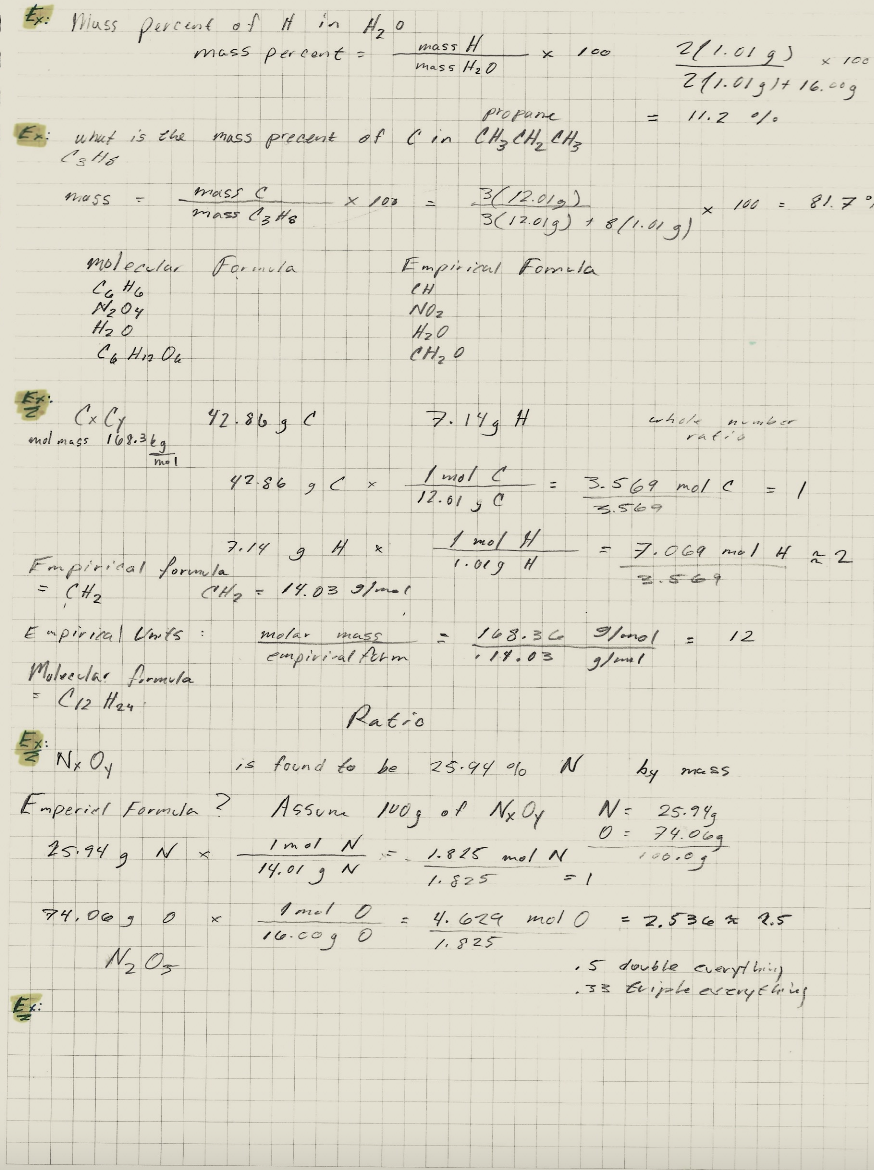 Ex: Mass percent of H in H2O
mass percent = mass H / mass H2O × 100 2(1.01 g) / 2(1.01g)+16.00g × 100
= 11.2 %
propane
Ex: what is the mass precent of C in CH3CH2CH3
C3H8
mass = mass C / mass C3H8 × 100 = 3(12.01g) / 3(12.01g) + 8(1.01 g) × 100 = 81.7 %
Molecular Formula Empirical Formula
C6H6 CH
N2O4 NO2
H2O H2O
C6H12O6 CH2O
Ex: CxCy 42.86 g C 7.14g H whole number
mol mass 168.36g/mol ratio
42.86 g C × 1 mol C / 12.01 g C = 3.569 mol C / 3.569 = 1
7.14 g H × 1 mol H / 1.01g H = 7.069 mol H / 3.569 ≈ 2
Empirical formula
= CH2 CH2 = 14.03 g/mol
Empirical Units: molar mass / empirical form = 168.36 g/mol / 14.03 g/mol = 12
Molecular formula
= C12H24
Ratio
Ex: NxOy is found to be 25.94 % N by mass
Emperiel Formula? Assume 100g of NxOy N = 25.94g
O = 74.06g
100.0g
25.94 g N × 1 mol N / 14.01 g N = 1.825 mol N / 1.825 = 1
74.06 g O × 1 mol O / 16.00g O = 4.629 mol O / 1.825 = 2.536 ≈ 2.5
N2O5
.5 double everything
.33 triple everything
Ex: